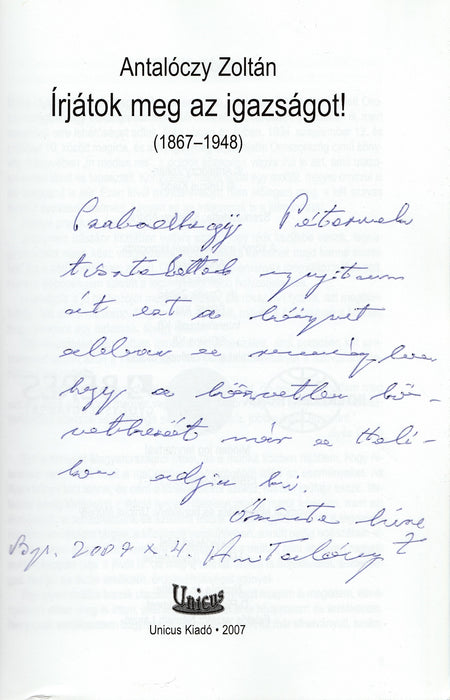 Antalóczy Zoltán
Írjátok meg az igazságot!
(1867–1948)
Péternek
tisztelettel nyujtom
át ezt a könyvet
abban a reményben
hogy a közvetlen kö-
vetkezőt már a Heli-
kon adja ki.
Őszinte híve
Bp. 2007 X. 4. Antalóczy Z
Unicus
Unicus Kiadó • 2007